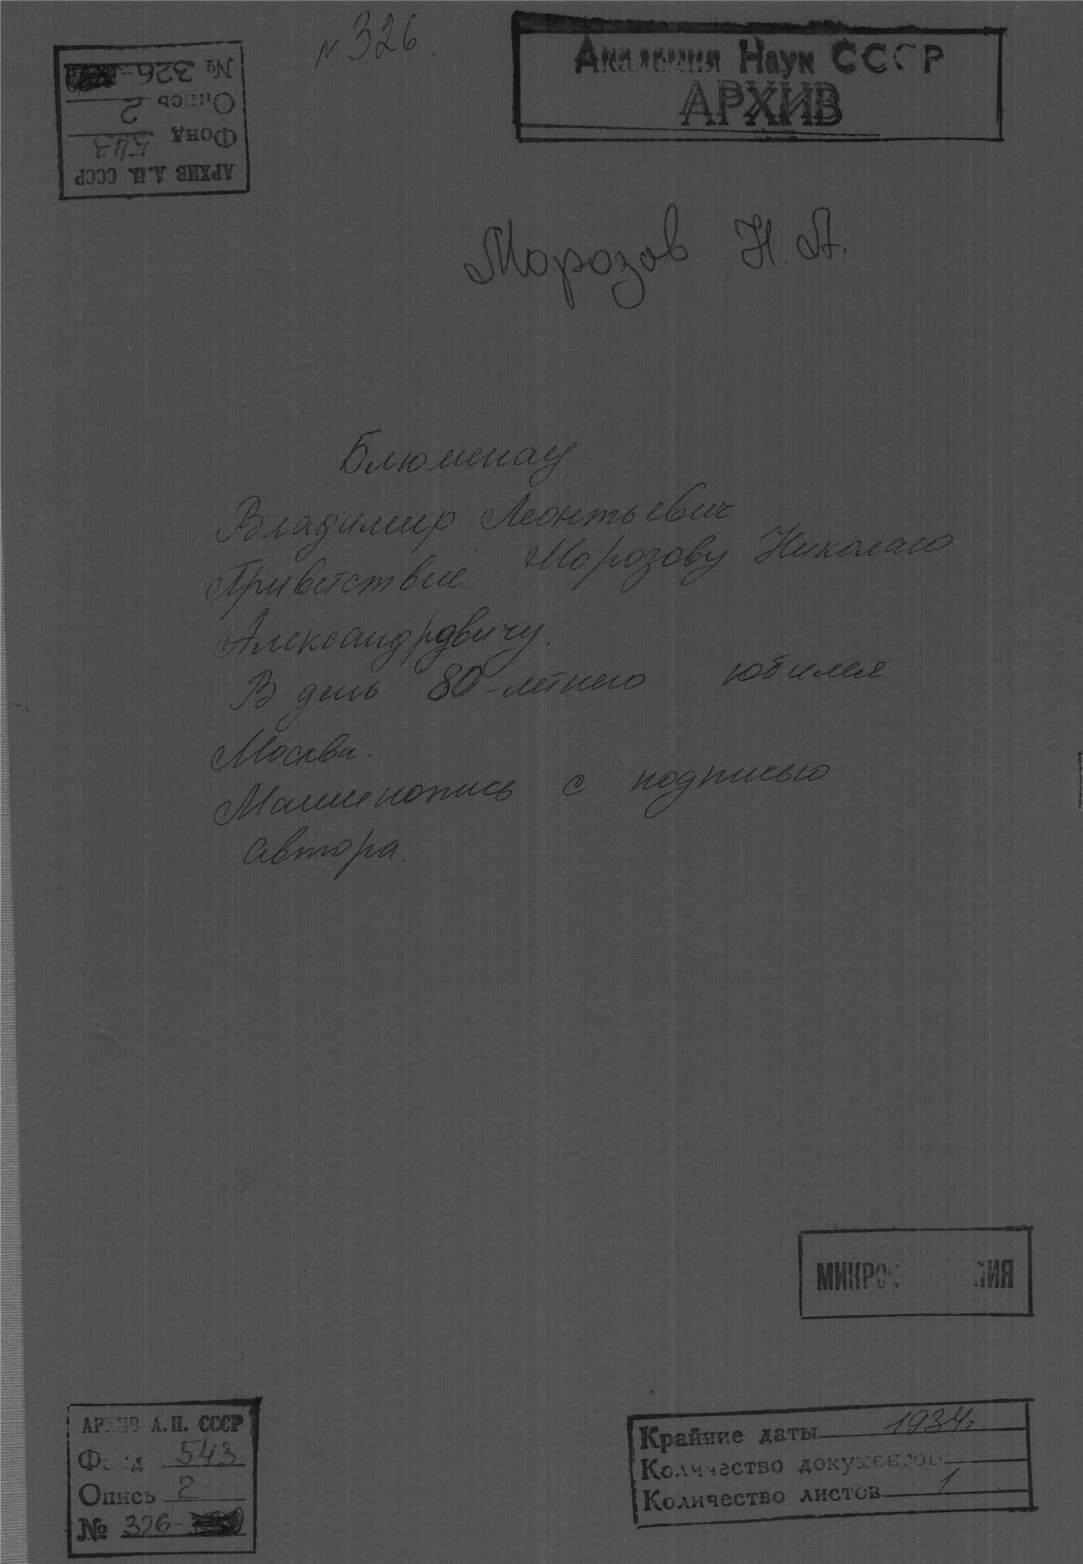 № 326.
Академия Наук СССР
АРХИВ
АРХИВ А.Н. СССР
Фонд 543
Опись 2
№ 326
Морозов Н.А.
Блюменау
Владимир Леонтьевич
Приветствие Морозову Николаю
Александровичу.
В день 80-летнего юбилея
Москва.
Машинопись с подписью
автора.
АРХИВ А.Н. СССР
Фонд 543
Опись 2
№ 326
Крайние даты 1934г.
Количество документов
Количество листов 1